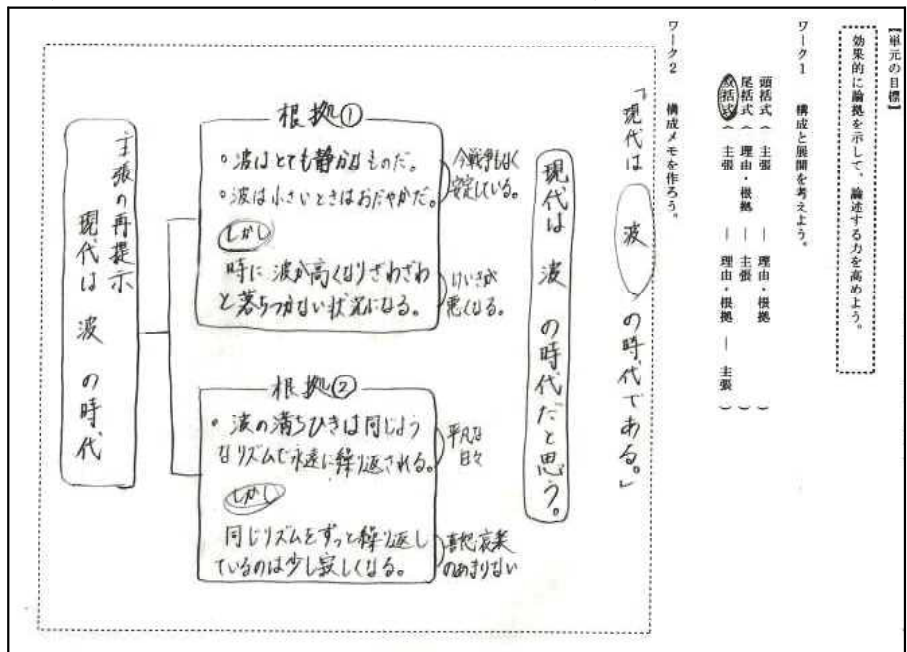 【単元の目標】
効果的に論拠を示して、論述する力を高めよう。
ワーク1　構成と展開を考えよう。
頭括式（　主張　―　理由・根拠　）
尾括式（　理由・根拠　―　主張　）
双括式（　主張　―　理由・根拠　―　主張　）
ワーク2　構成メモを作ろう。
「現代は　波　の時代である。」
現代は　波　の時代だと思う。
根拠①
◦波はとても静かなものだ。
◦波は小さいときはおだやかだ。
しかし
時に波が高くなりざわざわ
と落ちつかない状況になる。
今戦争もなく
安定している。
けいきが
悪くなる。
根拠②
◦波の満ちひきは同じよう
なリズムで永遠に繰り返される。
しかし
同じリズムをずっと繰り返し
ているのは少し寂しくなる。
平凡な
日々
喜怒哀楽
のあまりない
主張の再提示
現代は　波　の時代